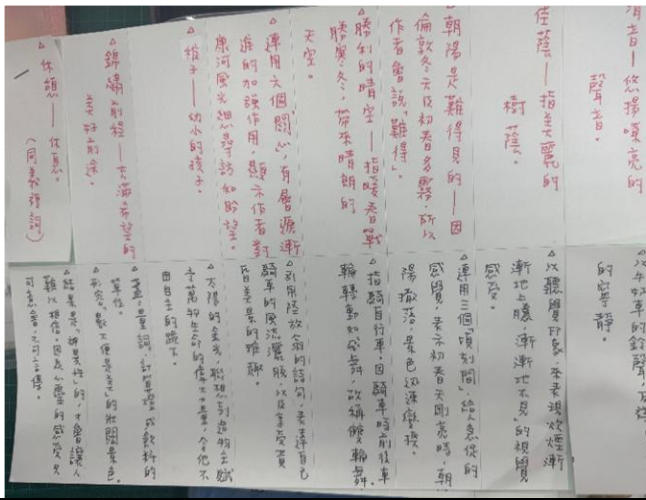 消音—悠揚嘹亮的
聲音。
佳蔭—指美麗的
樹蔭。
△朝陽是難得見的—因
倫敦冬天及初春多霧,所以
作者會說「難得」。
勝利的晴空—指暖春戰
勝寒冬,帶來晴朗的
天空。
連用六個關心,有層遞漸
進的加強作用,顯示作者對
康河風光細尋訪如盼望。
△稚子—幼小的孩子。
△錦繡前程—充滿希望的
美好前途。
△休憩—休息。
(同義複詞)
以牛奶車的鈴聲,反襯
的寧靜。
△以聽覺印象來表現炊煙漸
漸地上騰,漸漸地不見的視覺
感受。
△連用三個「頃刻間」,給人急促的
感覺,表示初春天剛亮時,朝
陽撒落,景色迅速變換。
△指騎自行車,因騎車時前後車
輪轉動如飛舞,故稱雙輪舞
△引用陸放翁的詩句,表達自己
騎車的風流灑脫,以及享受賞
玩美景的雅趣。
△太陽的金光,聯想到造物主賦
予萬物生命的偉大力量,令他不
由自主的跪下。
△量詞,計算
單位。
△形容景象不僅是美的壯闊景色。
△難以相信,因為心靈的感受只
可意會,不可言傳。